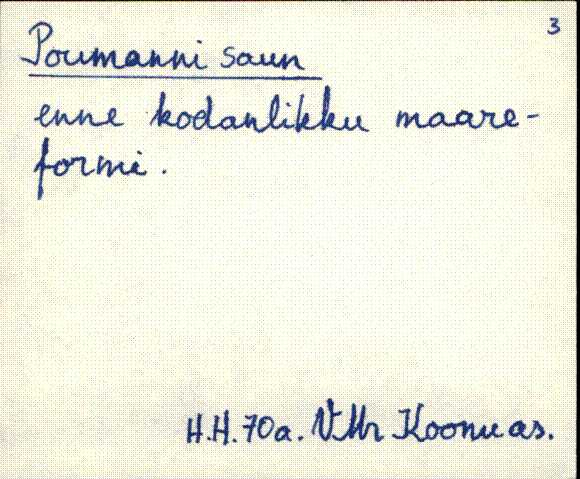 3
Poumanni saun
enne kodanlikku maare-
formi.
H.H. 70a. VMr Koonu as.